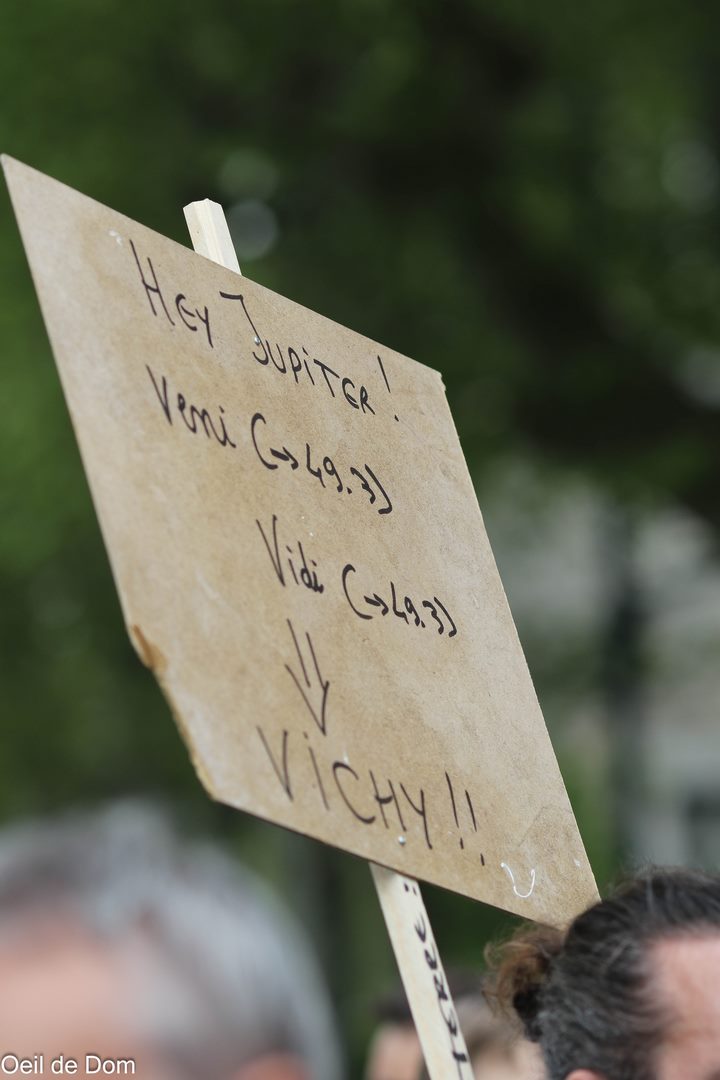 HEY JUPITER !
Veni (→49.3)
Vidi (→49.3)
⇓
VICHY !!
Oeil de Dom